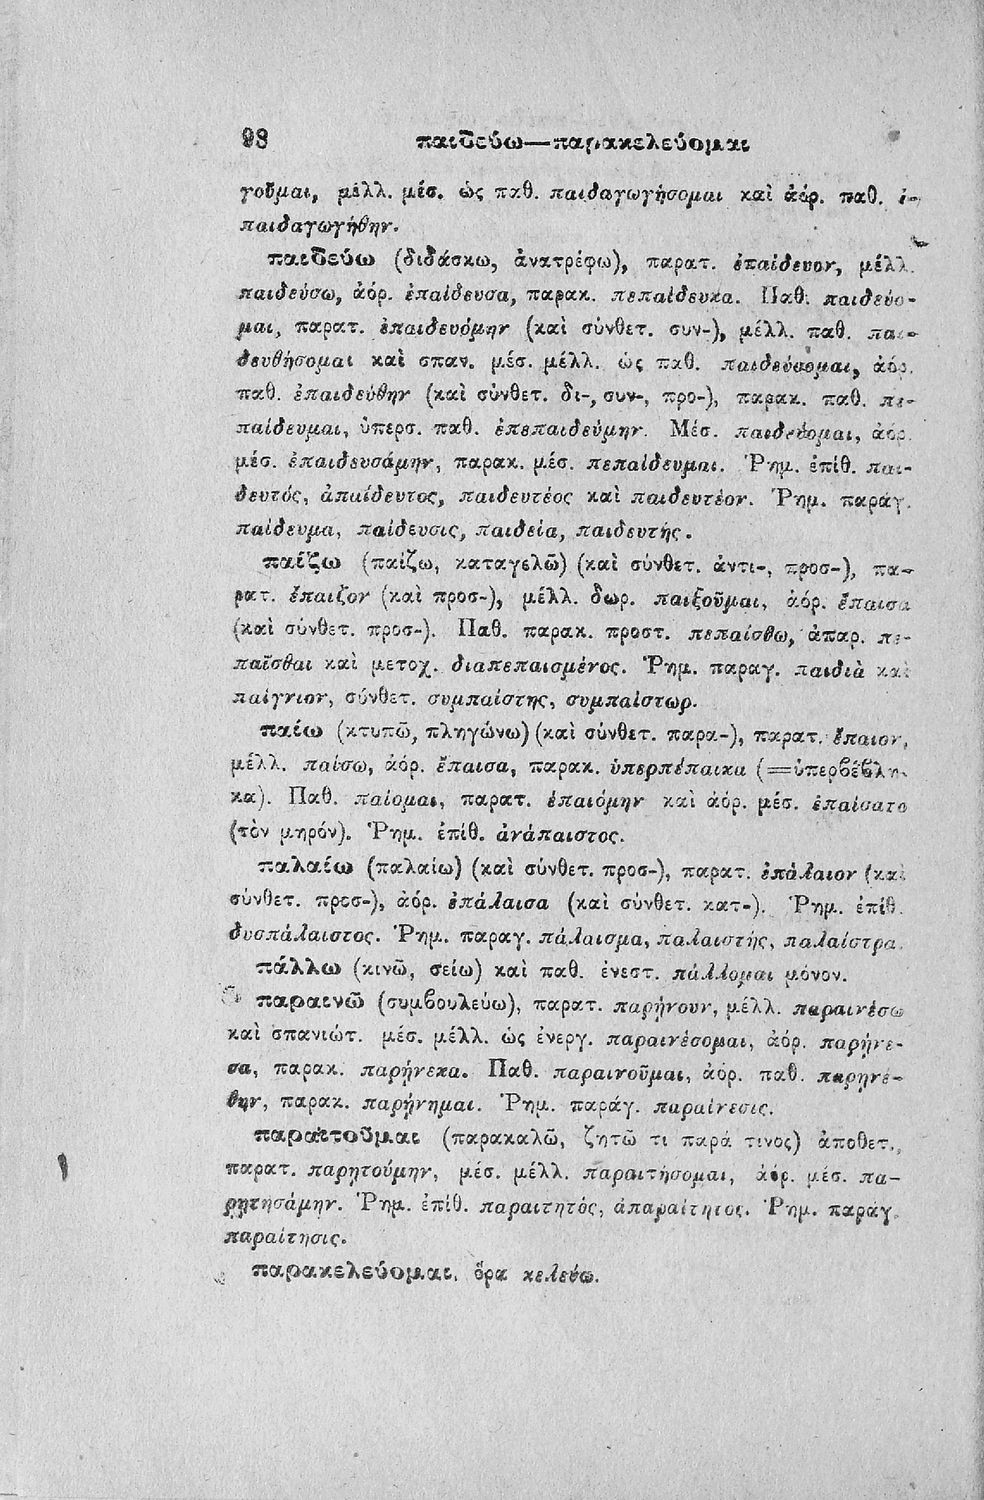 98 παιδεύω—παρακελεύομαι
γοῦμαι, μέλλ. μέσ. ὡς παθ. παιδαγωγήσομαι καὶ ἀόρ. παθ. ἐ-
παιδαγωγήθην.
παιδεύω (διδάσκω, ἀνατρέφω), παρατ. ἐπαίδευον, μέλλ.
παιδεύσω, ἀόρ. ἐπαίδευσα, παρακ. πεπαίδευκα. Παθ. παιδεύο-
μαι, παρατ. ἐπαιδευόμην (καὶ σύνθετ. συν-), μέλλ. παθ. παι-
δευθήσομαι καὶ σπαν. μέσ. μέλλ. ὡς παθ. παιδεύσομαι, ἀόρ.
παθ. ἐπαιδεύθην (καὶ σύνθετ. δι-, συν-, προ-), παρακ. παθ. πε-
παίδευμαι, ὑπερσ. παθ. ἐπεπαιδεύμην. Μέσ. παιδεύομαι, ἀόρ.
μέσ. ἐπαιδευσάμην, παρακ. μέσ. πεπαίδευμαι. Ῥημ. ἐπίθ. παι-
δευτός, ἀπαίδευτος, παιδευτέος καὶ παιδευτέον. Ῥημ. παράγ.
παίδευμα, παίδευσις, παιδεία, παιδευτής.
παίζω (παίζω, καταγελῶ) (καὶ σύνθετ. ἀντι-, προσ-), πα-
ρατ. ἔπαιζον (καὶ προσ-), μέλλ. δωρ. παιξοῦμαι, ἀόρ. ἔπαισα
(καὶ σύνθετ. προσ-). Παθ. παρακ. προστ. πεπαίσθω, ἀπαρ. πε-
παῖσθαι καὶ μετοχ. διαπεπαισμένος. Ῥημ. παραγ. παιδιὰ καὶ
παίγνιον, σύνθετ. συμπαίστης, συμπαίστωρ.
παίω (κτυπῶ, πληγώνω) (καὶ σύνθετ. παρα-), παρατ. ἔπαιον,
μέλλ. παίσω, ἀόρ. ἔπαισα, παρακ. ὑπερπέπαικα (=ὑπερβέβλη-
κα). Παθ. παίομαι, παρατ. ἐπαιόμην καὶ ἀόρ. μέσ. ἐπαίσατο
(τὸν μηρόν). Ῥημ. ἐπίθ. ἀνάπαιστος.
παλαίω (παλαίω) (καὶ σύνθετ. προσ-), παρατ. ἐπάλαιον (καὶ
σύνθετ. προσ-), ἀόρ. ἐπάλαισα (καὶ σύνθετ. κατ-). Ῥημ. ἐπίθ.
δυσπάλαιστος. Ῥημ. παραγ. πάλαισμα, παλαιστής, παλαίστρα.
πάλλω (κινῶ, σείω) καὶ παθ. ἐνεστ. πάλλομαι μόνον.
παραινῶ (συμβουλεύω), παρατ. παρῄνουν, μέλλ. παραινέσω
καὶ σπανιώτ. μέσ. μέλλ. ὡς ἐνεργ. παραινέσομαι, ἀόρ. παρῄνε-
σα, παρακ. παρῄνεκα. Παθ. παραινοῦμαι, ἀόρ. παθ. παρῃνέ-
θην, παρακ. παρῄνημαι. Ῥημ. παράγ. παραίνεσις.
παραιτοῦμαι (παρακαλῶ, ζητῶ τι παρά τινος) ἀποθετ.,
παρατ. παρῃτούμην, μέσ. μέλλ. παραιτήσομαι, ἀόρ. μέσ. πα-
ρῃτησάμην. Ῥημ. ἐπίθ. παραιτητός, ἀπαραίτητος. Ῥημ. παράγ.
παραίτησις.
παρακελεύομαι, ὅρα κελεύω.